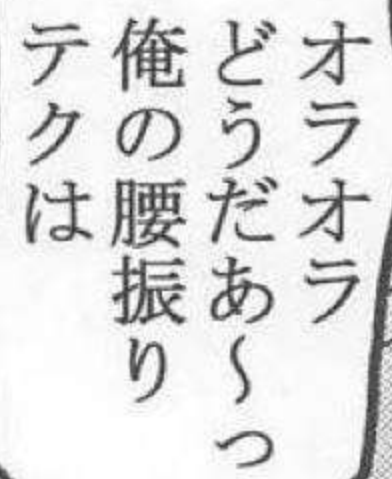 オラオラ
どうだあ～っ
俺の腰振り
テクは